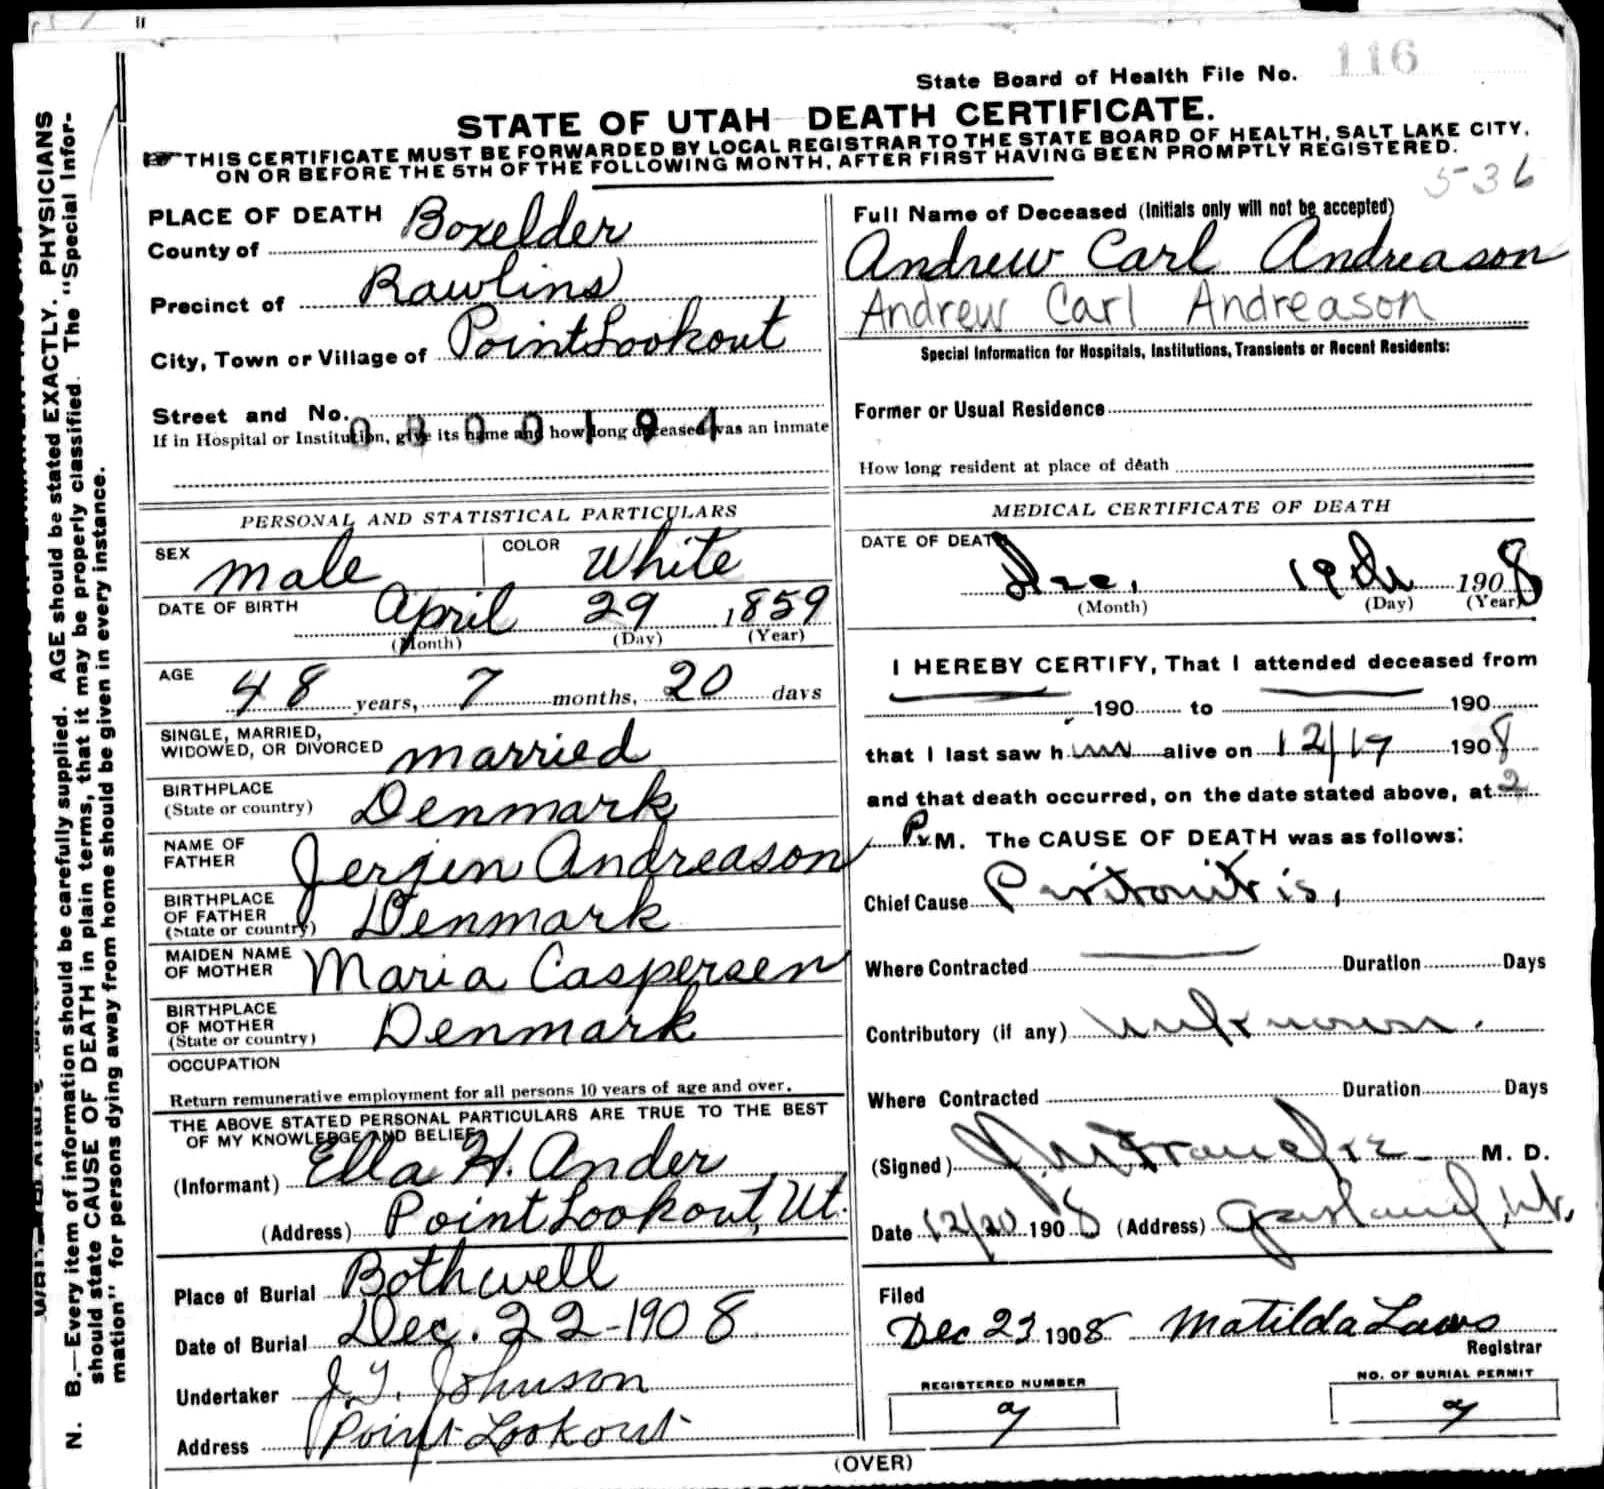 State Board of Health File No. 116
STATE OF UTAH—DEATH CERTIFICATE.
THIS CERTIFICATE MUST BE FORWARDED BY LOCAL REGISTRAR TO THE STATE BOARD OF HEALTH, SALT LAKE CITY,
ON OR BEFORE THE 5TH OF THE FOLLOWING MONTH, AFTER FIRST HAVING BEEN PROMPTLY REGISTERED.
536
PLACE OF DEATH
County of Boxelder
Precinct of Rawlins
City, Town or Village of Point Lookout
Street and No.
0300194
If in Hospital or Institution, give its name and how long deceased was an inmate
PERSONAL AND STATISTICAL PARTICULARS
SEX male COLOR White
DATE OF BIRTH April 29 1859
(Month) (Day) (Year)
AGE 48 years, 7 months, 20 days
SINGLE, MARRIED,
WIDOWED, OR DIVORCED married
BIRTHPLACE
(State or country) Denmark
NAME OF
FATHER Jergen Andreason
BIRTHPLACE
OF FATHER
(State or country) Denmark
MAIDEN NAME
OF MOTHER Maria Caspersen
BIRTHPLACE
OF MOTHER
(State or country) Denmark
OCCUPATION
Return remunerative employment for all persons 10 years of age and over.
THE ABOVE STATED PERSONAL PARTICULARS ARE TRUE TO THE BEST
OF MY KNOWLEDGE AND BELIEF
(Informant) Ella H. Ander
(Address) Point Lookout, Ut.
Place of Burial Bothwell
Date of Burial Dec. 22-1908
Undertaker J. Y. Johnson
Address Point Lookout
Full Name of Deceased (Initials only will not be accepted)
Andrew Carl Andreason
Andrew Carl Andreason
Special Information for Hospitals, Institutions, Transients or Recent Residents:
Former or Usual Residence
How long resident at place of death
MEDICAL CERTIFICATE OF DEATH
DATE OF DEATH
Dec. 19th 1908
(Month) (Day) (Year)
I HEREBY CERTIFY, That I attended deceased from
190 to 190
that I last saw him alive on 12/17 1908
and that death occurred, on the date stated above, at 2
P. M. The CAUSE OF DEATH was as follows:
Chief Cause Peritonitis,
Where Contracted Duration Days
Contributory (if any) unknown.
Where Contracted Duration Days
(Signed) M. D.
Date 12/20 1908 (Address) Garland, Ut.
Filed
Dec 23 1908 Matilda Laws
Registrar
REGISTERED NUMBER
NO. OF BURIAL PERMIT
(OVER)
N. B.—Every item of information should be carefully supplied. AGE should be stated EXACTLY. PHYSICIANS
should state CAUSE OF DEATH in plain terms, that it may be properly classified. The "Special Infor-
mation" for persons dying away from home should be given in every instance.